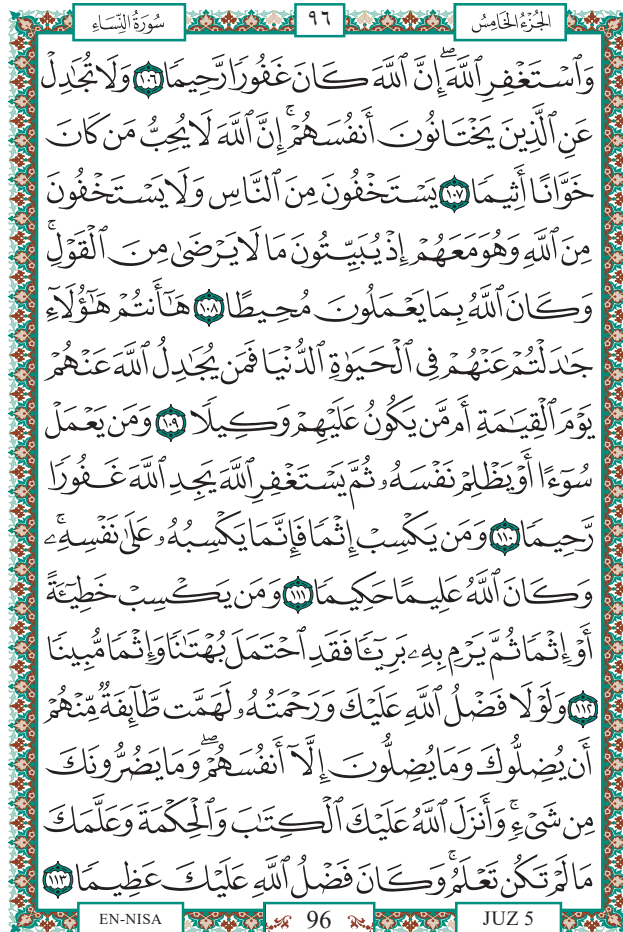 الجُزْءُ الخَامِسُ ٩٦ سُورَةُ النِّسَاءِ
وَٱسْتَغْفِرِ ٱللَّهَۖ إِنَّ ٱللَّهَ كَانَ غَفُورًا رَّحِيمًا ١٠٦ وَلَا تُجَٰدِلْ
عَنِ ٱلَّذِينَ يَخْتَانُونَ أَنفُسَهُمْۚ إِنَّ ٱللَّهَ لَا يُحِبُّ مَن كَانَ
خَوَّانًا أَثِيمًا ١٠٧ يَسْتَخْفُونَ مِنَ ٱلنَّاسِ وَلَا يَسْتَخْفُونَ
مِنَ ٱللَّهِ وَهُوَ مَعَهُمْ إِذْ يُبَيِّتُونَ مَا لَا يَرْضَىٰ مِنَ ٱلْقَوْلِۚ
وَكَانَ ٱللَّهُ بِمَا يَعْمَلُونَ مُحِيطًا ١٠٨ هَٰٓأَنتُمْ هَٰٓؤُلَآءِ
جَٰدَلْتُمْ عَنْهُمْ فِى ٱلْحَيَوٰةِ ٱلدُّنْيَا فَمَن يُجَٰدِلُ ٱللَّهَ عَنْهُمْ
يَوْمَ ٱلْقِيَٰمَةِ أَم مَّن يَكُونُ عَلَيْهِمْ وَكِيلًا ١٠٩ وَمَن يَعْمَلْ
سُوٓءًا أَوْ يَظْلِمْ نَفْسَهُۥ ثُمَّ يَسْتَغْفِرِ ٱللَّهَ يَجِدِ ٱللَّهَ غَفُورًا
رَّحِيمًا ١١٠ وَمَن يَكْسِبْ إِثْمًا فَإِنَّمَا يَكْسِبُهُۥ عَلَىٰ نَفْسِهِۦۚ
وَكَانَ ٱللَّهُ عَلِيمًا حَكِيمًا ١١١ وَمَن يَكْسِبْ خَطِيٓـَٔةً
أَوْ إِثْمًا ثُمَّ يَرْمِ بِهِۦ بَرِيٓـًٔا فَقَدِ ٱحْتَمَلَ بُهْتَٰنًا وَإِثْمًا مُّبِينًا
١١٢ وَلَوْلَا فَضْلُ ٱللَّهِ عَلَيْكَ وَرَحْمَتُهُۥ لَهَمَّت طَّآئِفَةٌ مِّنْهُمْ
أَن يُضِلُّوكَ وَمَا يُضِلُّونَ إِلَّآ أَنفُسَهُمْۖ وَمَا يَضُرُّونَكَ
مِن شَىْءٍۚ وَأَنزَلَ ٱللَّهُ عَلَيْكَ ٱلْكِتَٰبَ وَٱلْحِكْمَةَ وَعَلَّمَكَ
مَا لَمْ تَكُن تَعْلَمُۚ وَكَانَ فَضْلُ ٱللَّهِ عَلَيْكَ عَظِيمًا ١١٣
EN-NISA 96 JUZ 5